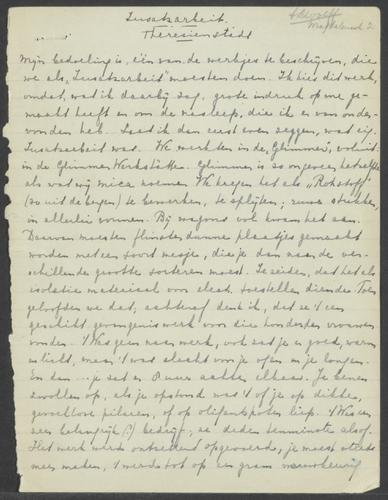 Zusatzarbeit.
Theresienstadt
Mijn bedoeling is, één van de werkjes te beschrijven, die
we als "Zusatzarbeit" moesten doen. Ik kies dit werk,
omdat, wat ik daarbij zag, grote indruk op me ge-
maakt heeft en om de nasleep, die ik er van onder-
vonden heb. Laat ik dan eerst even zeggen, wat eig.
Zusatzarbeit was. We werkten in de "Glimmer", voluit
in de Glimmer Werkstätte. Glimmer is zo ongeveer hetzelfde
als wat wij mica noemen. We kregen het als "Rohstoff"
(zo uit de bergen) te bewerken, te splijten; ruwe stukken,
in allerlei vormen. Bij wagons vol kwam het aan.
Daarvan moesten flinterdunne plaatjes gemaakt
worden met een soort mesje, die je dan naar de ver-
schillende grootte sorteren moest. Ze zeiden, dat het als
isolatie materiaal voor elect. toestellen diende. Toen
geloofden we dat, achteraf denk ik, dat ze 't een
geschikt gevangeniswerk voor die honderden vrouwen
vonden. 't Was geen naar werk, ook zat je er goed, warm
en licht, maar 't was slecht voor je ogen en je longen.
En dan ... je zat er 8 uur achter elkaar. Je benen
zwollen op, als je opstond was 't of je op dikke,
gevoelloze pilaren, of op olifantspoten liep. 't Was een
zeer belangrijk (?) bedrijf, ze deden tenminste alsof.
Het werk werd ontzettend opgevoerd, je moest steeds
meer maken, 't werd tot op een gram nauwkeurig